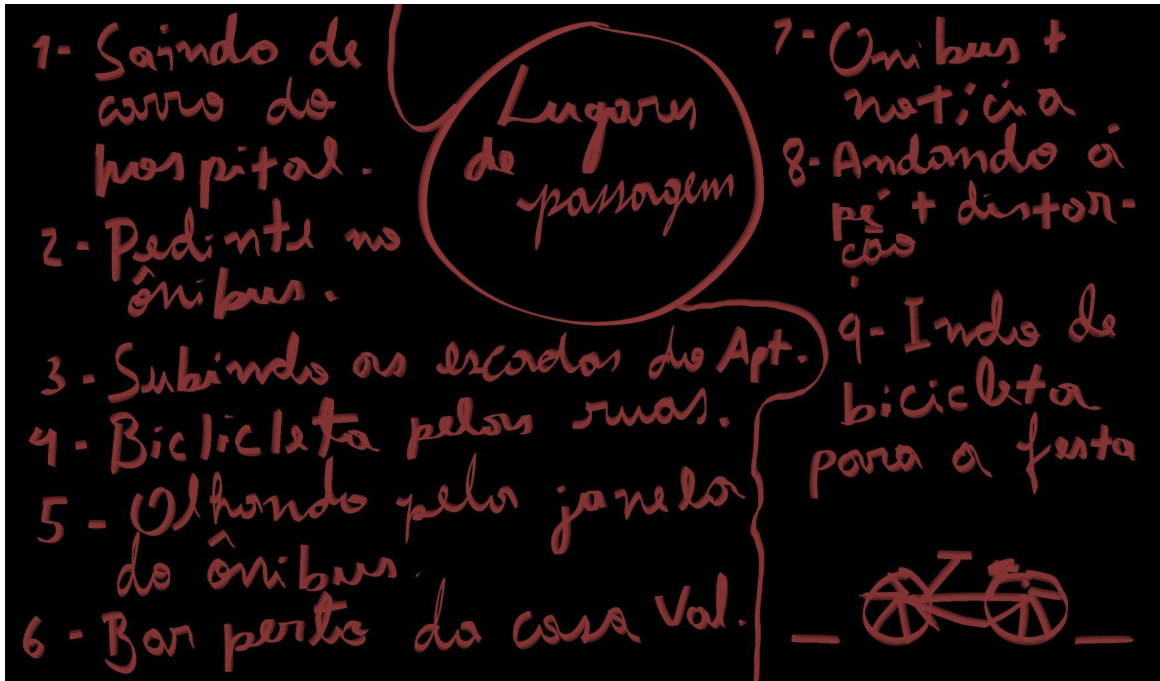 Lugares
de
passagem
1- Saindo de
carro do
hospital.
2- Pedinte no
ônibus.
3- Subindo as escadas do Apt.
4- Biclicleta pelas ruas.
5- Olhando pela janela
do ônibus.
6- Bar perto da casa Val.
7- Onibus +
notícia
8- Andando á
pé + distor-
ção
9- Indo de
bicicleta
para a festa